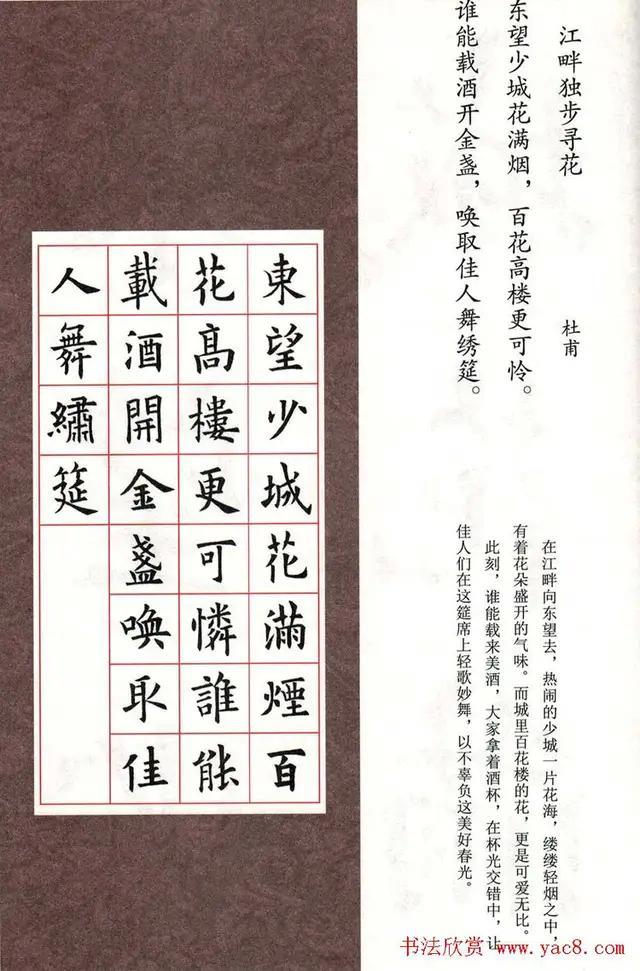 江畔独步寻花
杜甫
东望少城花满烟，百花高楼更可怜。
谁能载酒开金盏，唤取佳人舞绣筵。
在江畔向东望去，热闹的少城一片花海，缕缕轻烟之中，
有着花朵盛开的气味。而城里百花楼的花，更是可爱无比。
此刻，谁能载来美酒，大家拿着酒杯，在杯光交错中，让
佳人们在这筵席上轻歌妙舞，以不辜负这美好春光。
東望少城花滿煙百
花高樓更可憐誰能
載酒開金盞喚取佳
人舞繡筵
书法欣赏www.yac8.com